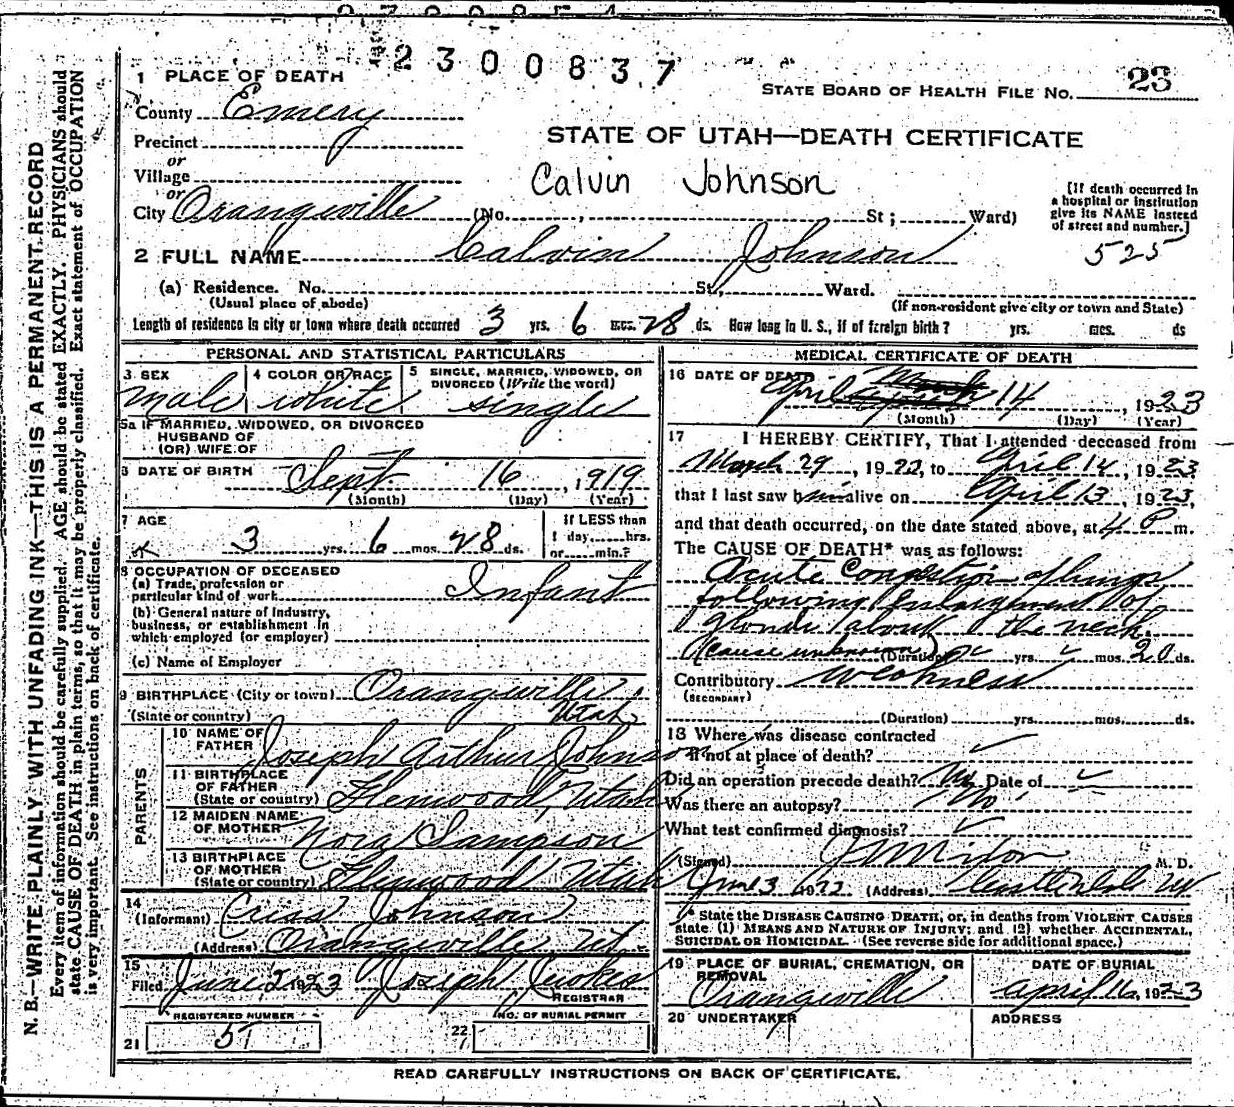 2300837
1 PLACE OF DEATH
STATE BOARD OF HEALTH FILE No. 23
County Emery
STATE OF UTAH—DEATH CERTIFICATE
Precinct
or
Village
Calvin Johnson
or
City Orangeville (No. , St ; Ward)
[If death occurred in
a hospital or institution
give its NAME instead
of street and number.]
525
2 FULL NAME Calvin Johnson
(a) Residence. No. St., Ward.
(Usual place of abode) (If non-resident give city or town and State)
Length of residence in city or town where death occurred 3 yrs. 6 mos. 28 ds. How long in U. S., if of foreign birth? yrs. mos. ds
PERSONAL AND STATISTICAL PARTICULARS
3 SEX 4 COLOR OR RACE 5 SINGLE, MARRIED, WIDOWED, OR
DIVORCED (Write the word)
male white single
5a IF MARRIED, WIDOWED, OR DIVORCED
HUSBAND OF
(OR) WIFE OF
6 DATE OF BIRTH Sept. 16, 1919
(Month) (Day) (Year)
7 AGE If LESS than
3 yrs. 6 mos. 28 ds. 1 day, hrs.
or min.?
8 OCCUPATION OF DECEASED
(a) Trade, profession or
particular kind of work Infant
(b) General nature of Industry,
business, or establishment in
which employed (or employer)
(c) Name of Employer
9 BIRTHPLACE (City or town) Orangeville
(State or country) Utah
PARENTS
10 NAME OF
FATHER Joseph Arthur Johnson
11 BIRTHPLACE
OF FATHER
(State or country) Glenwood, Utah
12 MAIDEN NAME
OF MOTHER Nora Sampson
13 BIRTHPLACE
OF MOTHER
(State or country) Glenwood Utah
14
(Informant) Johnson
(Address) Orangeville Ut.
15
Filed June 2 1923 Joseph Jewkes
REGISTRAR
REGISTERED NUMBER NO. OF BURIAL PERMIT
21 22
MEDICAL CERTIFICATE OF DEATH
16 DATE OF DEATH
April 14, 1923
(Month) (Day) (Year)
17 I HEREBY CERTIFY, That I attended deceased from
March 29, 1922, to April 14, 1923
that I last saw him alive on April 13, 1923,
and that death occurred, on the date stated above, at 4 P m.
The CAUSE OF DEATH* was as follows:
Acute Congestion of lungs
following Enlargment of
glands about the neck.
(cause unknown) (Duration) yrs. mos. 20 ds.
Contributory weakness
(SECONDARY)
(Duration) yrs. mos. ds.
18 Where was disease contracted
if not at place of death?
Did an operation precede death? No Date of
Was there an autopsy? No
What test confirmed diagnosis?
(Signed) M. D.
(Address) Castle Dale Ut
* State the DISEASE CAUSING DEATH, or, in deaths from VIOLENT CAUSES
state (1) MEANS AND NATURE OF INJURY; and (2) whether ACCIDENTAL,
SUICIDAL OR HOMICIDAL. (See reverse side for additional space.)
19 PLACE OF BURIAL, CREMATION, OR
REMOVAL
Orangeville
DATE OF BURIAL
April 16, 1923
20 UNDERTAKER ADDRESS
READ CAREFULLY INSTRUCTIONS ON BACK OF CERTIFICATE.
N. B.—WRITE PLAINLY WITH UNFADING INK—THIS IS A PERMANENT RECORD
Every item of information should be carefully supplied. AGE should be stated EXACTLY. PHYSICIANS should
state CAUSE OF DEATH in plain terms, so that it may be properly classified. Exact statement of OCCUPATION
is very important. See instructions on back of certificate.